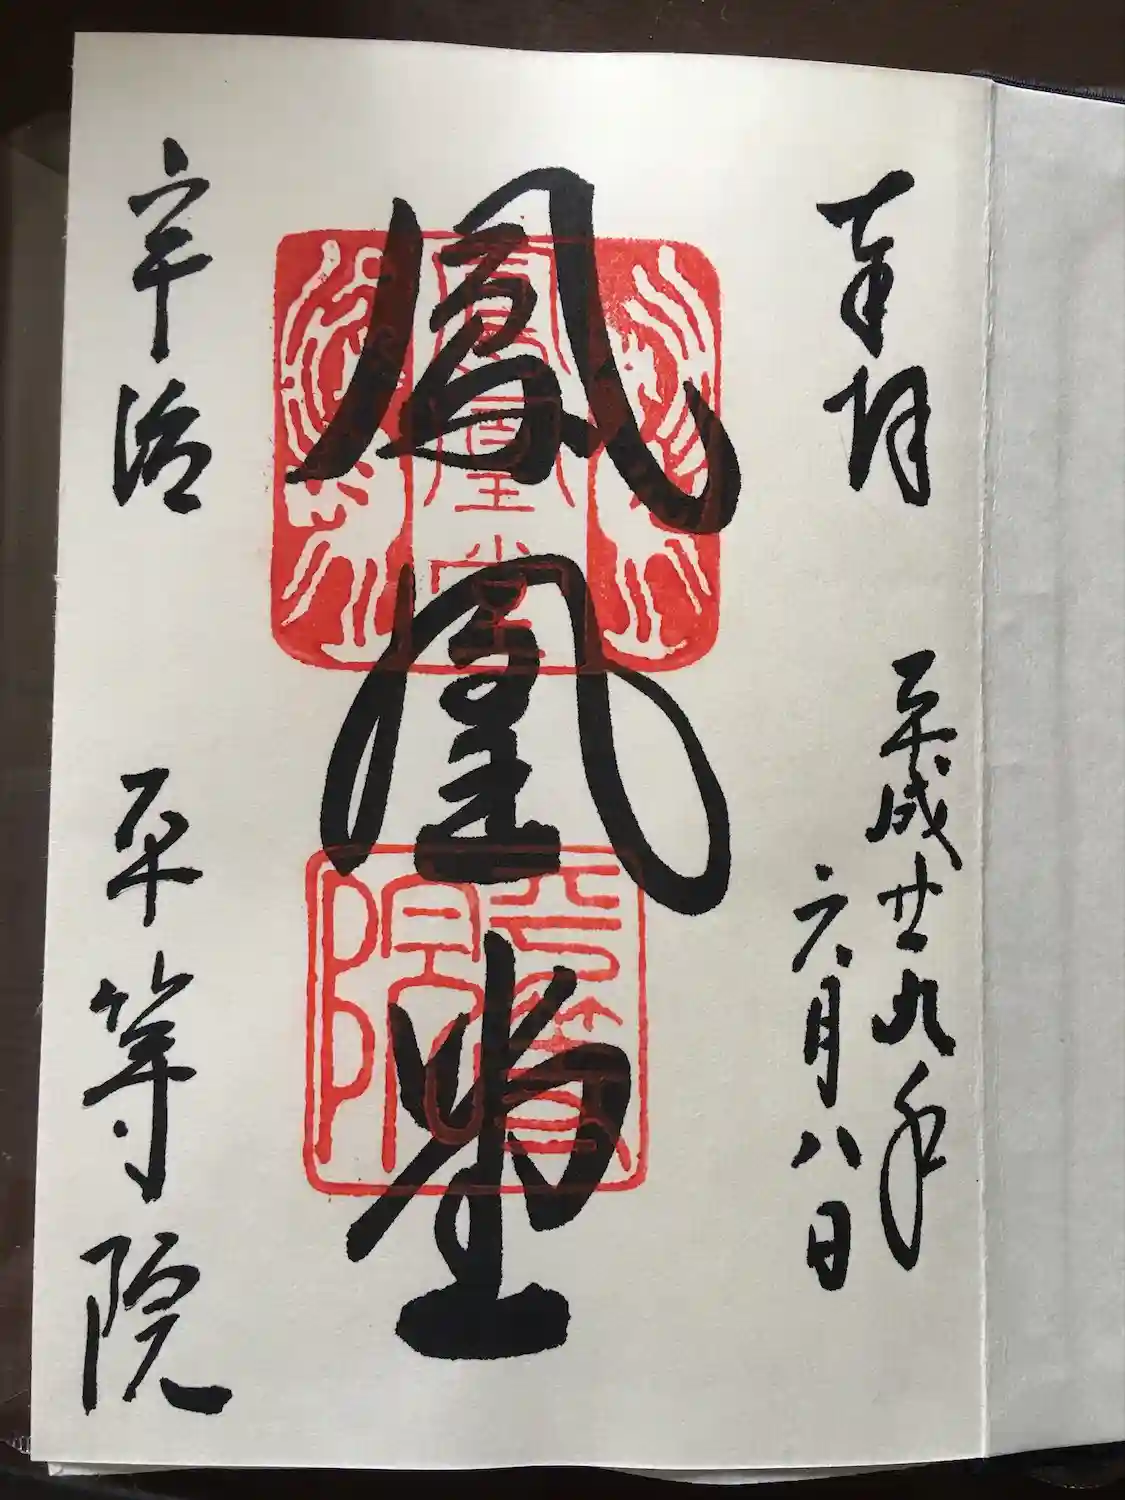 奉拝
平成廿九年
六月八日
鳳凰堂
鳳凰堂
平等院
宇治 平等院